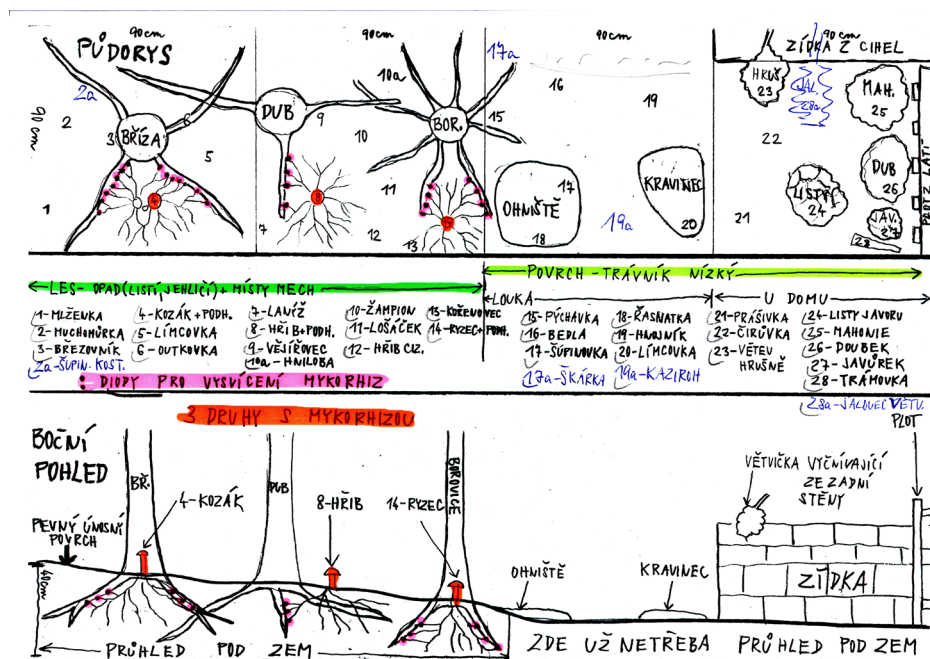 PŮDORYS
90cm
90cm
90cm
90cm
ZÍDKA Z CIHEL
90cm
2a
2
1
3
BŘÍZA
5
4
DUB
9
10
8
7
11
12
10a
BOR.
15
13
14
17a
16
19
OHNIŠTĚ
17
18
19a
KRAVINEC
20
HRUŠ
23
JAL.
28a
MAH.
25
22
21
LISTY
24
DUB
26
JAV.
27
28
PLOT Z LATÍ
POVRCH - TRÁVNÍK NÍZKÝ
LES - OPAD (LISTÍ, JEHLIČÍ) + MÍSTY MECH
LOUKA
U DOMU
1-MLŽENKA
2-MUCHOMŮRKA
3-BŘEZOVNÍK
2a-ŠUPIN. KOST.
4-KOZÁK + PODH.
5-LÍMCOVKA
6-OUTKOVKA
7-LANÝŽ
8-HŘIB + PODH.
9-VĚJÍŘOVEC
10a-HNILOBA
10-ŽAMPION
11-LOŠÁČEK
12-HŘIB CIZ.
13-KOŘENOVEC
14-RYZEC + PODH.
15-PÝCHAVKA
16-BEDLA
17-ŠUPINOVKA
17a-ŠKÁRKA
18-ŘASNATKA
19-HNOJNÍK
20-LÍMCOVKA
19a-KAZIROH
21-PRÁŠIVKA
22-ČIRŮVKA
23-VĚTEV
HRUŠNĚ
24-LISTY JAVORU
25-MAHONIE
26-DOUBEK
27-JAVŮREK
28-TRÁMOVKA
28a-JALOVEC VĚTV.
DIODY PRO VYSVÍCENÍ MYKORHIZ
3 DRUHY S MYKORHIZOU
BOČNÍ
POHLED
PEVNÝ ÚNOSNÝ
POVRCH
40cm
BŘ.
4-KOZÁK
DUB
8-HŘIB
14-RYZEC
BOROVICE
OHNIŠTĚ
KRAVINEC
VĚTVIČKA VYČNÍVAJÍCÍ
ZE ZADNÍ
STĚNY
PLOT
ZÍDKA
PRŮHLED POD ZEM
ZDE UŽ NETŘEBA PRŮHLED POD ZEM